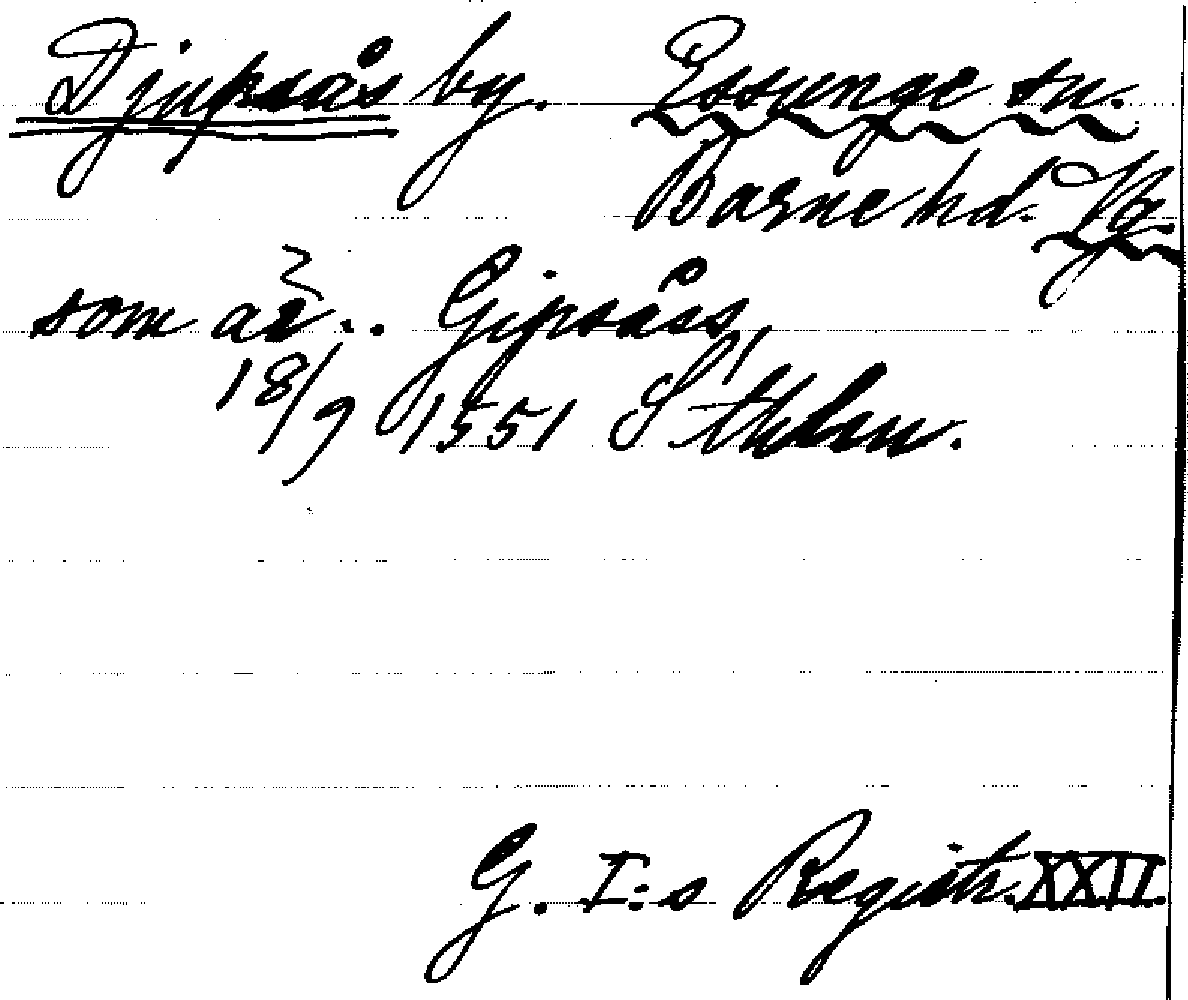 Djupsås by. Essunge sn.
Barne hd. Vg.
som är.. Gipsåss,
18/9 1551 Sthlm.
G. I:s Registr. XXII.